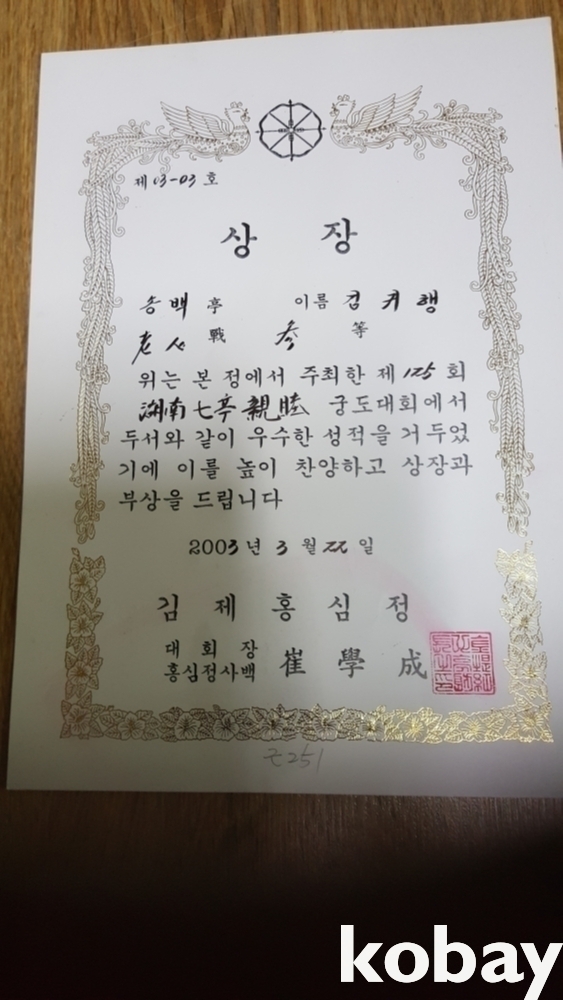 제 03-03 호
상 장
송백 亭 이름 김 규 행
老人 戰 参 等
위는 본 정에서 주최한 제 125 회
湖南七亭親睦 궁도대회에서
두서와 같이 우수한 성적을 거두었
기에 이를 높이 찬양하고 상장과
부상을 드립니다
2003 년 3 월 22 일
김 제 홍 심 정
대 회 장
홍심정사백 崔 學 成
근251
kobay